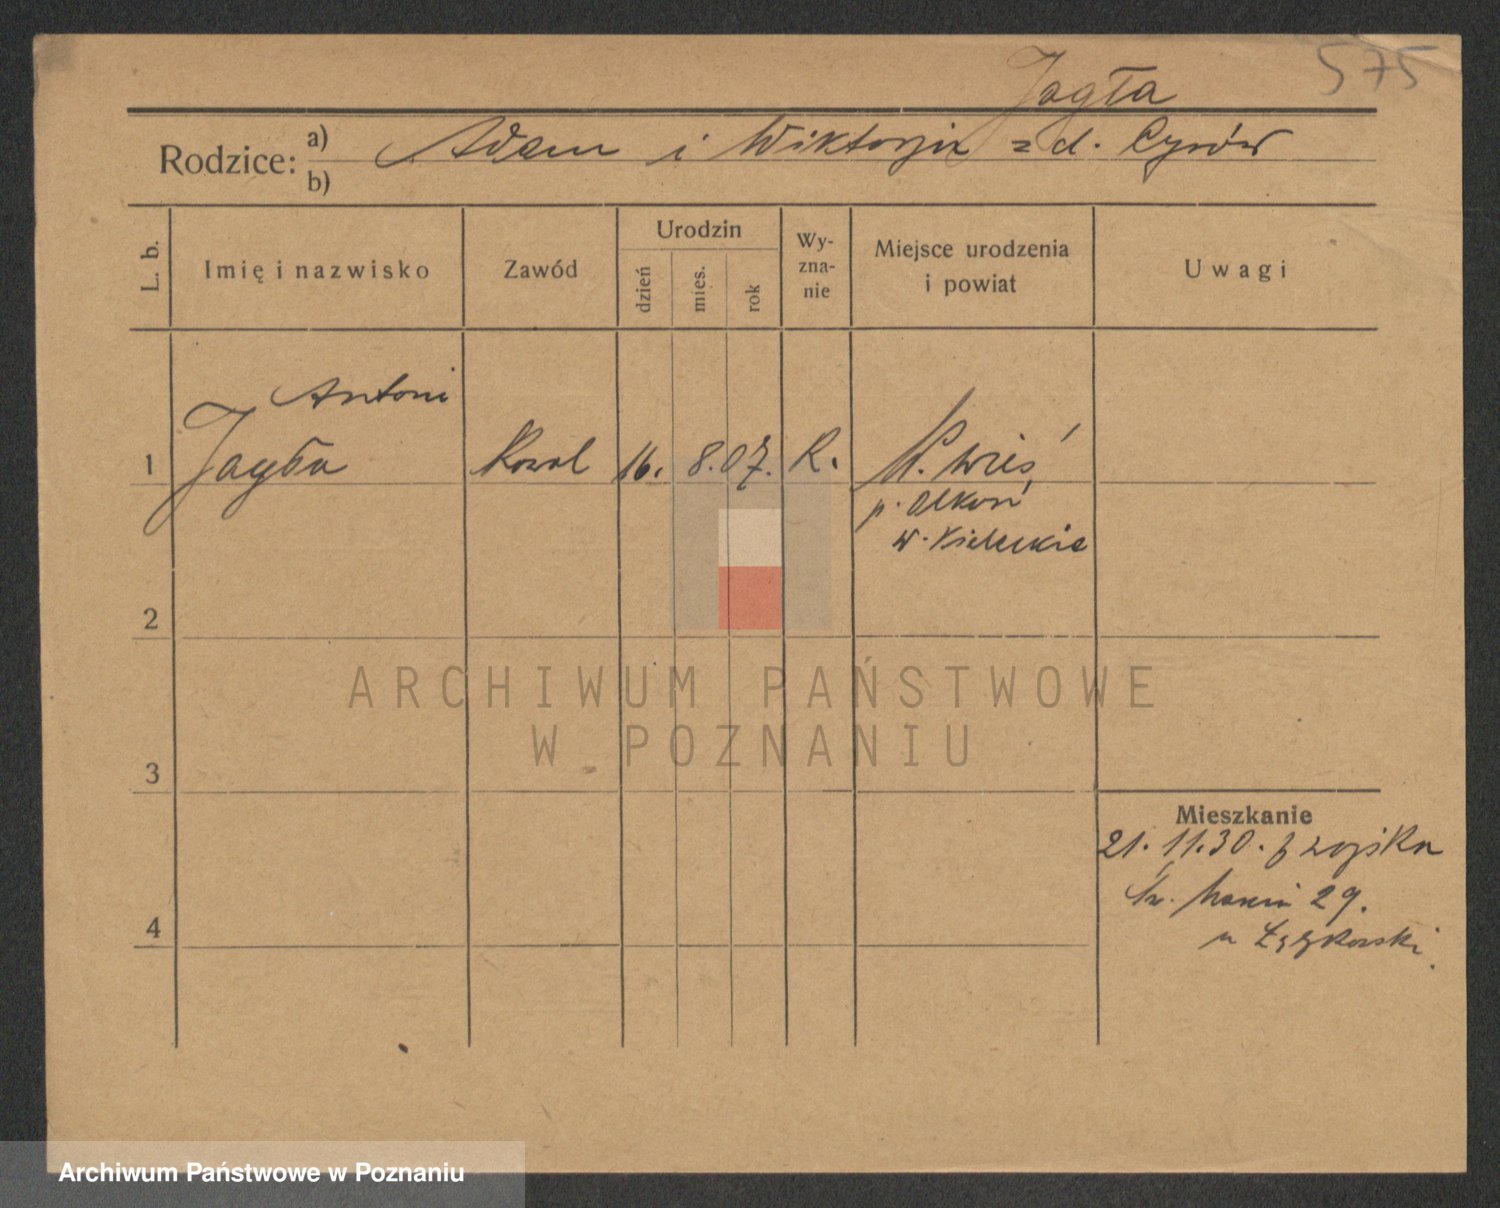 575
Jagła
Rodzice: a) Adam i Wiktorja z d. Cyrów
b)
L. b. Imię i nazwisko Zawód Urodzin dzień mies. rok Wyznanie Miejsce urodzenia i powiat Uwagi
Antoni
1 Jagła Kowal 16. 8. 07. R. N. Wieś
p. Olkusz
w. Kieleckie
2
ARCHIWUM PAŃSTWOWE
W POZNANIU
3
Mieszkanie
21. 11. 30. z wojska
29.
4
Archiwum Państwowe w Poznaniu